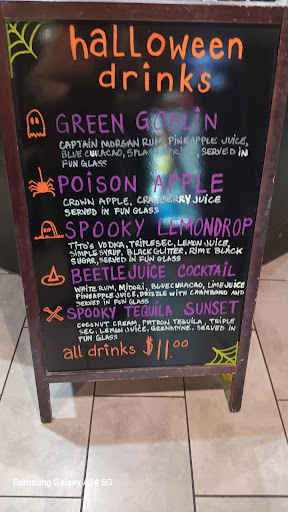 halloween
drinks
GREEN GOBLIN
CAPTAIN MORGAN RUM, PINEAPPLE JUICE,
BLUE CURACAO, SERVED IN
FUN GLASS
POISON APPLE
CROWN APPLE, CRANBERRY JUICE
SERVED IN FUN GLASS
RIP
SPOOKY LEMONDROP
TITO'S VODKA, TRIPLE SEC, LEMON JUICE,
SIMPLE SYRUP, BLACK GLITTER, RIM: BLACK
SUGAR, SERVED IN FUN GLASS
BEETLEJUICE COCKTAIL
WHITE RUM, MIDORI, BLUE CURACAO, LIME JUICE
PINEAPPLE JUICE, DRIZZLE WITH CHAMBORD AND
SERVED IN FUN GLASS
SPOOKY TEQUILA SUNSET
COCONUT CREAM, PATRON TEQUILA, TRIPLE
SEC, LEMON JUICE, GRENADINE. SERVED IN
FUN GLASS
all drinks $11.00
Samsung Galaxy A14 5G